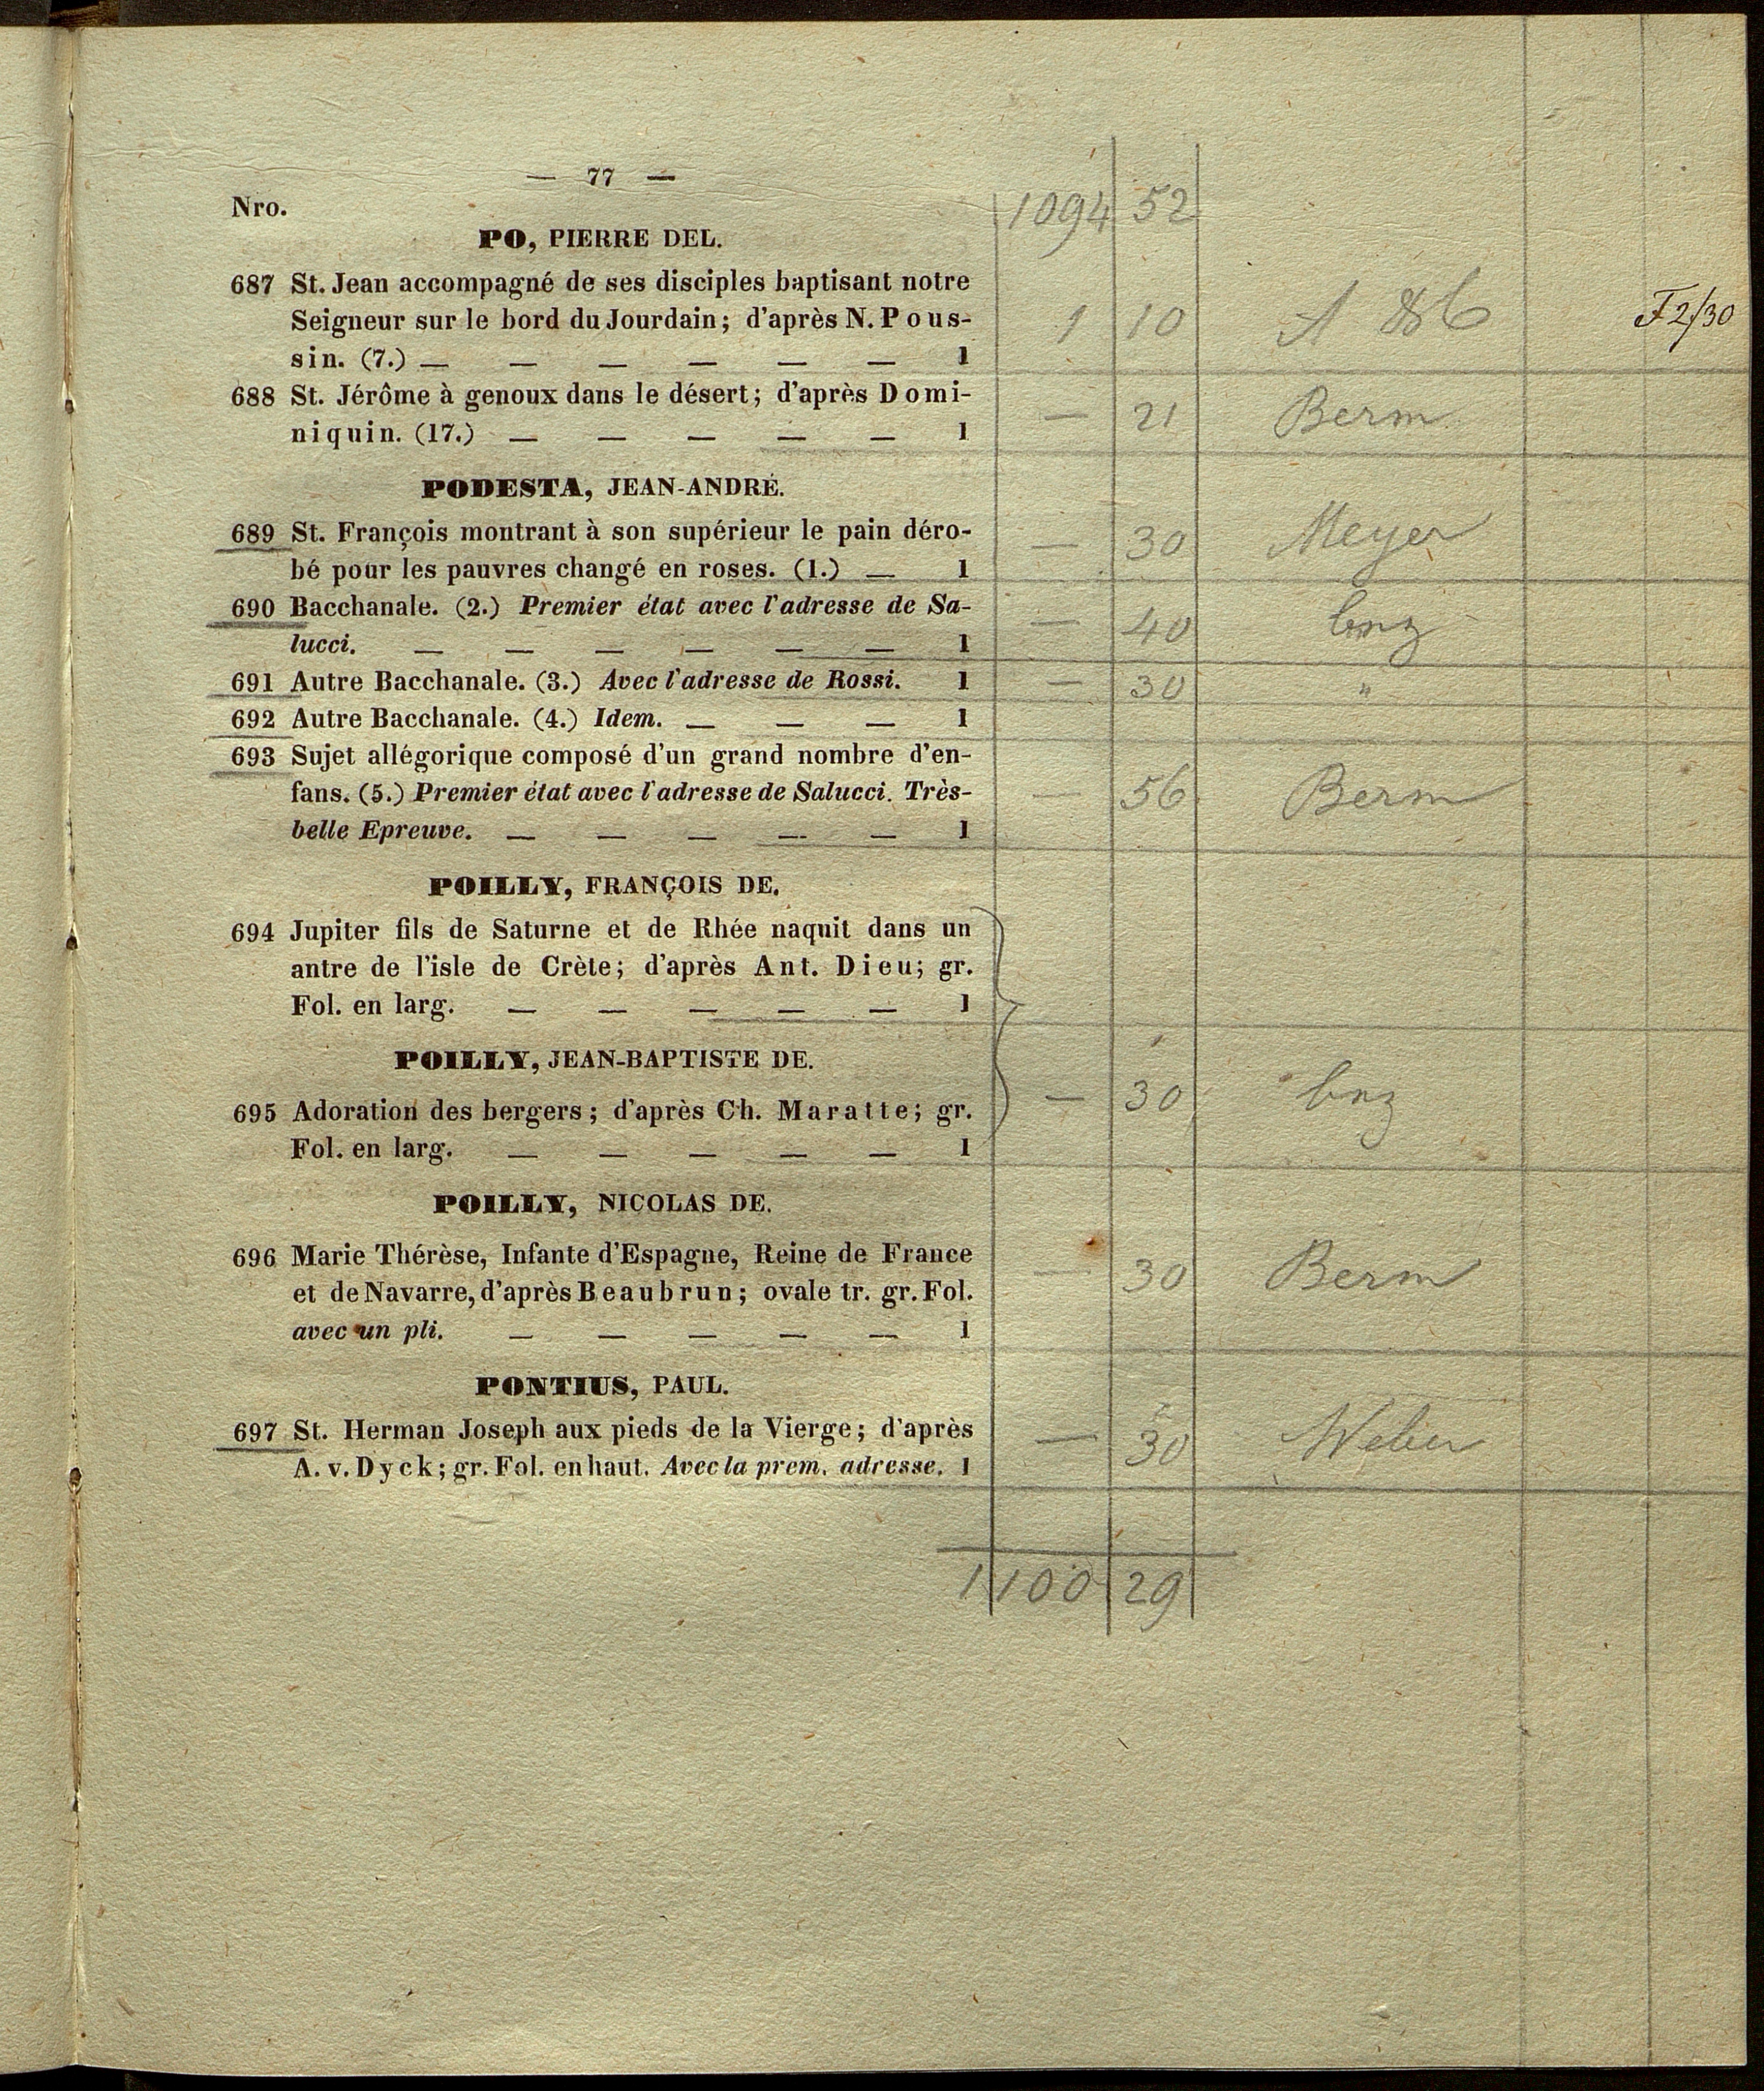 — 77 —
Nro.
1094 52
PO, PIERRE DEL.
687 St. Jean accompagné de ses disciples baptisant notre
Seigneur sur le bord du Jourdain; d'après N. Pous-
sin. (7.) — — — — — — 1
1 10 F 2/30
688 St. Jérôme à genoux dans le désert; d'après Domi-
niquin. (17.) — — — — — 1
— 21 Berm
PODESTA, JEAN-ANDRÉ.
689 St. François montrant à son supérieur le pain déro-
bé pour les pauvres changé en roses. (1.) — 1
— 30 Meyer
690 Bacchanale. (2.) Premier état avec l'adresse de Sa-
lucci. — — — — — — 1
— 40
691 Autre Bacchanale. (3.) Avec l'adresse de Rossi. 1 — 30 "
692 Autre Bacchanale. (4.) Idem. — — — 1
693 Sujet allégorique composé d'un grand nombre d'en-
fans. (5.) Premier état avec l'adresse de Salucci. Très-
belle Epreuve. — — — — — 1
— 56 Berm
POILLY, FRANÇOIS DE.
694 Jupiter fils de Saturne et de Rhée naquit dans un
antre de l'isle de Crète; d'après Ant. Dieu; gr.
Fol. en larg. — — — — — 1
POILLY, JEAN-BAPTISTE DE.
695 Adoration des bergers; d'après Ch. Maratte; gr.
Fol. en larg. — — — — — 1
— 30
POILLY, NICOLAS DE.
696 Marie Thérèse, Infante d'Espagne, Reine de France
et de Navarre, d'après Beaubrun; ovale tr. gr. Fol.
avec un pli. — — — — — 1
— 30 Berm
PONTIUS, PAUL.
697 St. Herman Joseph aux pieds de la Vierge; d'après
A. v. Dyck; gr. Fol. en haut. Avec la prem. adresse. 1
— 30 Weber
1100 29